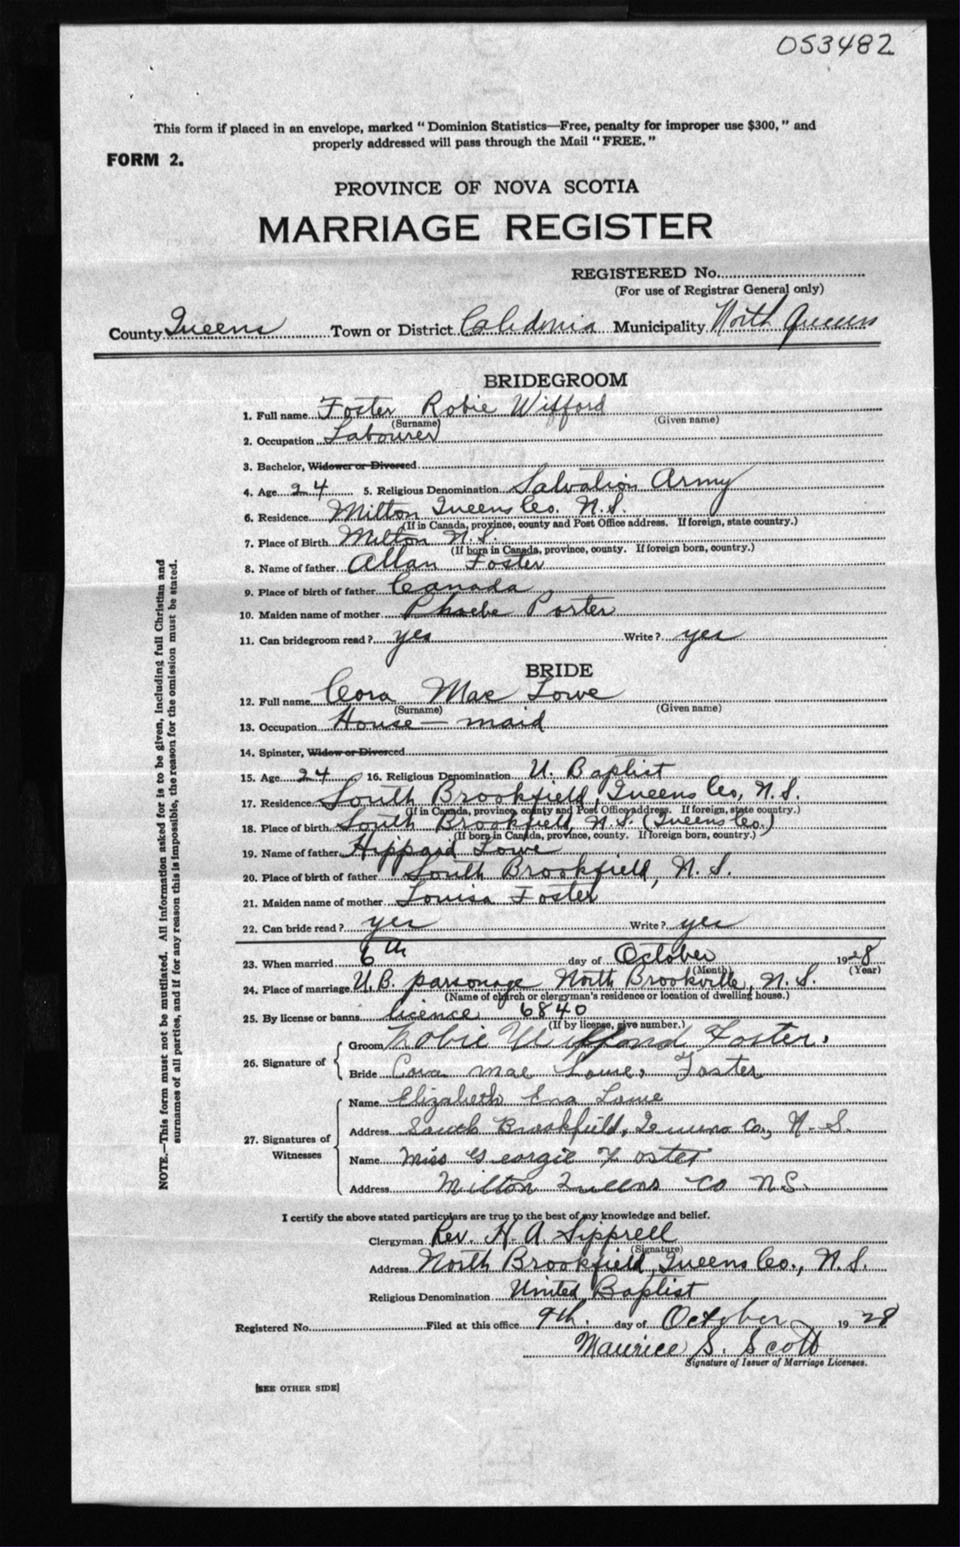 053482
This form if placed in an envelope, marked "Dominion Statistics—Free, penalty for improper use $300," and
properly addressed will pass through the Mail "FREE."
FORM 2.
PROVINCE OF NOVA SCOTIA
MARRIAGE REGISTER
REGISTERED No.
(For use of Registrar General only)
County Queens Town or District Caledonia Municipality North Queens
BRIDEGROOM
1. Full name Foster Robie Wifford
(Surname) (Given name)
2. Occupation Labourer
3. Bachelor, Widower or Divorced
4. Age 24 5. Religious Denomination Salvation Army
6. Residence Milton Queens Co. N.S.
(If in Canada, province, county and Post Office address. If foreign, state country.)
7. Place of Birth Milton N.S.
(If born in Canada, province, county. If foreign born, country.)
8. Name of father Allan Foster
9. Place of birth of father Canada
10. Maiden name of mother Phoebe Porter
11. Can bridegroom read? yes Write? yes
BRIDE
12. Full name Cora Mae Lowe
(Surname) (Given name)
13. Occupation House-maid
14. Spinster, Widow or Divorced
15. Age 24 16. Religious Denomination U. Baptist
17. Residence South Brookfield, Queens Co, N.S.
(If in Canada, province, county and Post Office address. If foreign, state country.)
18. Place of birth South Brookfield, N.S. (Queens Co.)
(If born in Canada, province, county. If foreign born, country.)
19. Name of father Hippard Lowe
20. Place of birth of father South Brookfield, N.S.
21. Maiden name of mother Louisa Foster
22. Can bride read? yes Write? yes
23. When married 6th day of October 1928
(Month) (Year)
24. Place of marriage U.B. parsonage North Brookville, N.S.
(Name of church or clergyman's residence or location of dwelling house.)
25. By license or banns licence 6840
(If by license, give number.)
26. Signature of
Groom Robie Foster.
Bride Cora Mae Lowe, Foster
27. Signatures of Witnesses
Name Elizabeth Ena Lowe
Address South Brookfield, Queens Co., N.S.
Name Miss Georgie Foster
Address Milton Queens Co N.S.
I certify the above stated particulars are true to the best of my knowledge and belief.
Clergyman Rev. H. A. Sipprell
(Signature)
Address North Brookfield, Queens Co., N.S.
Religious Denomination United Baptist
Registered No. Filed at this office 9th. day of October 1928
Maurice S. Scott
Signature of Issuer of Marriage Licenses.
[SEE OTHER SIDE]
NOTE.—This form must not be mutilated. All information asked for is to be given, including full Christian and
surnames of all parties, and if for any reason this is impossible, the reason for the omission must be stated.